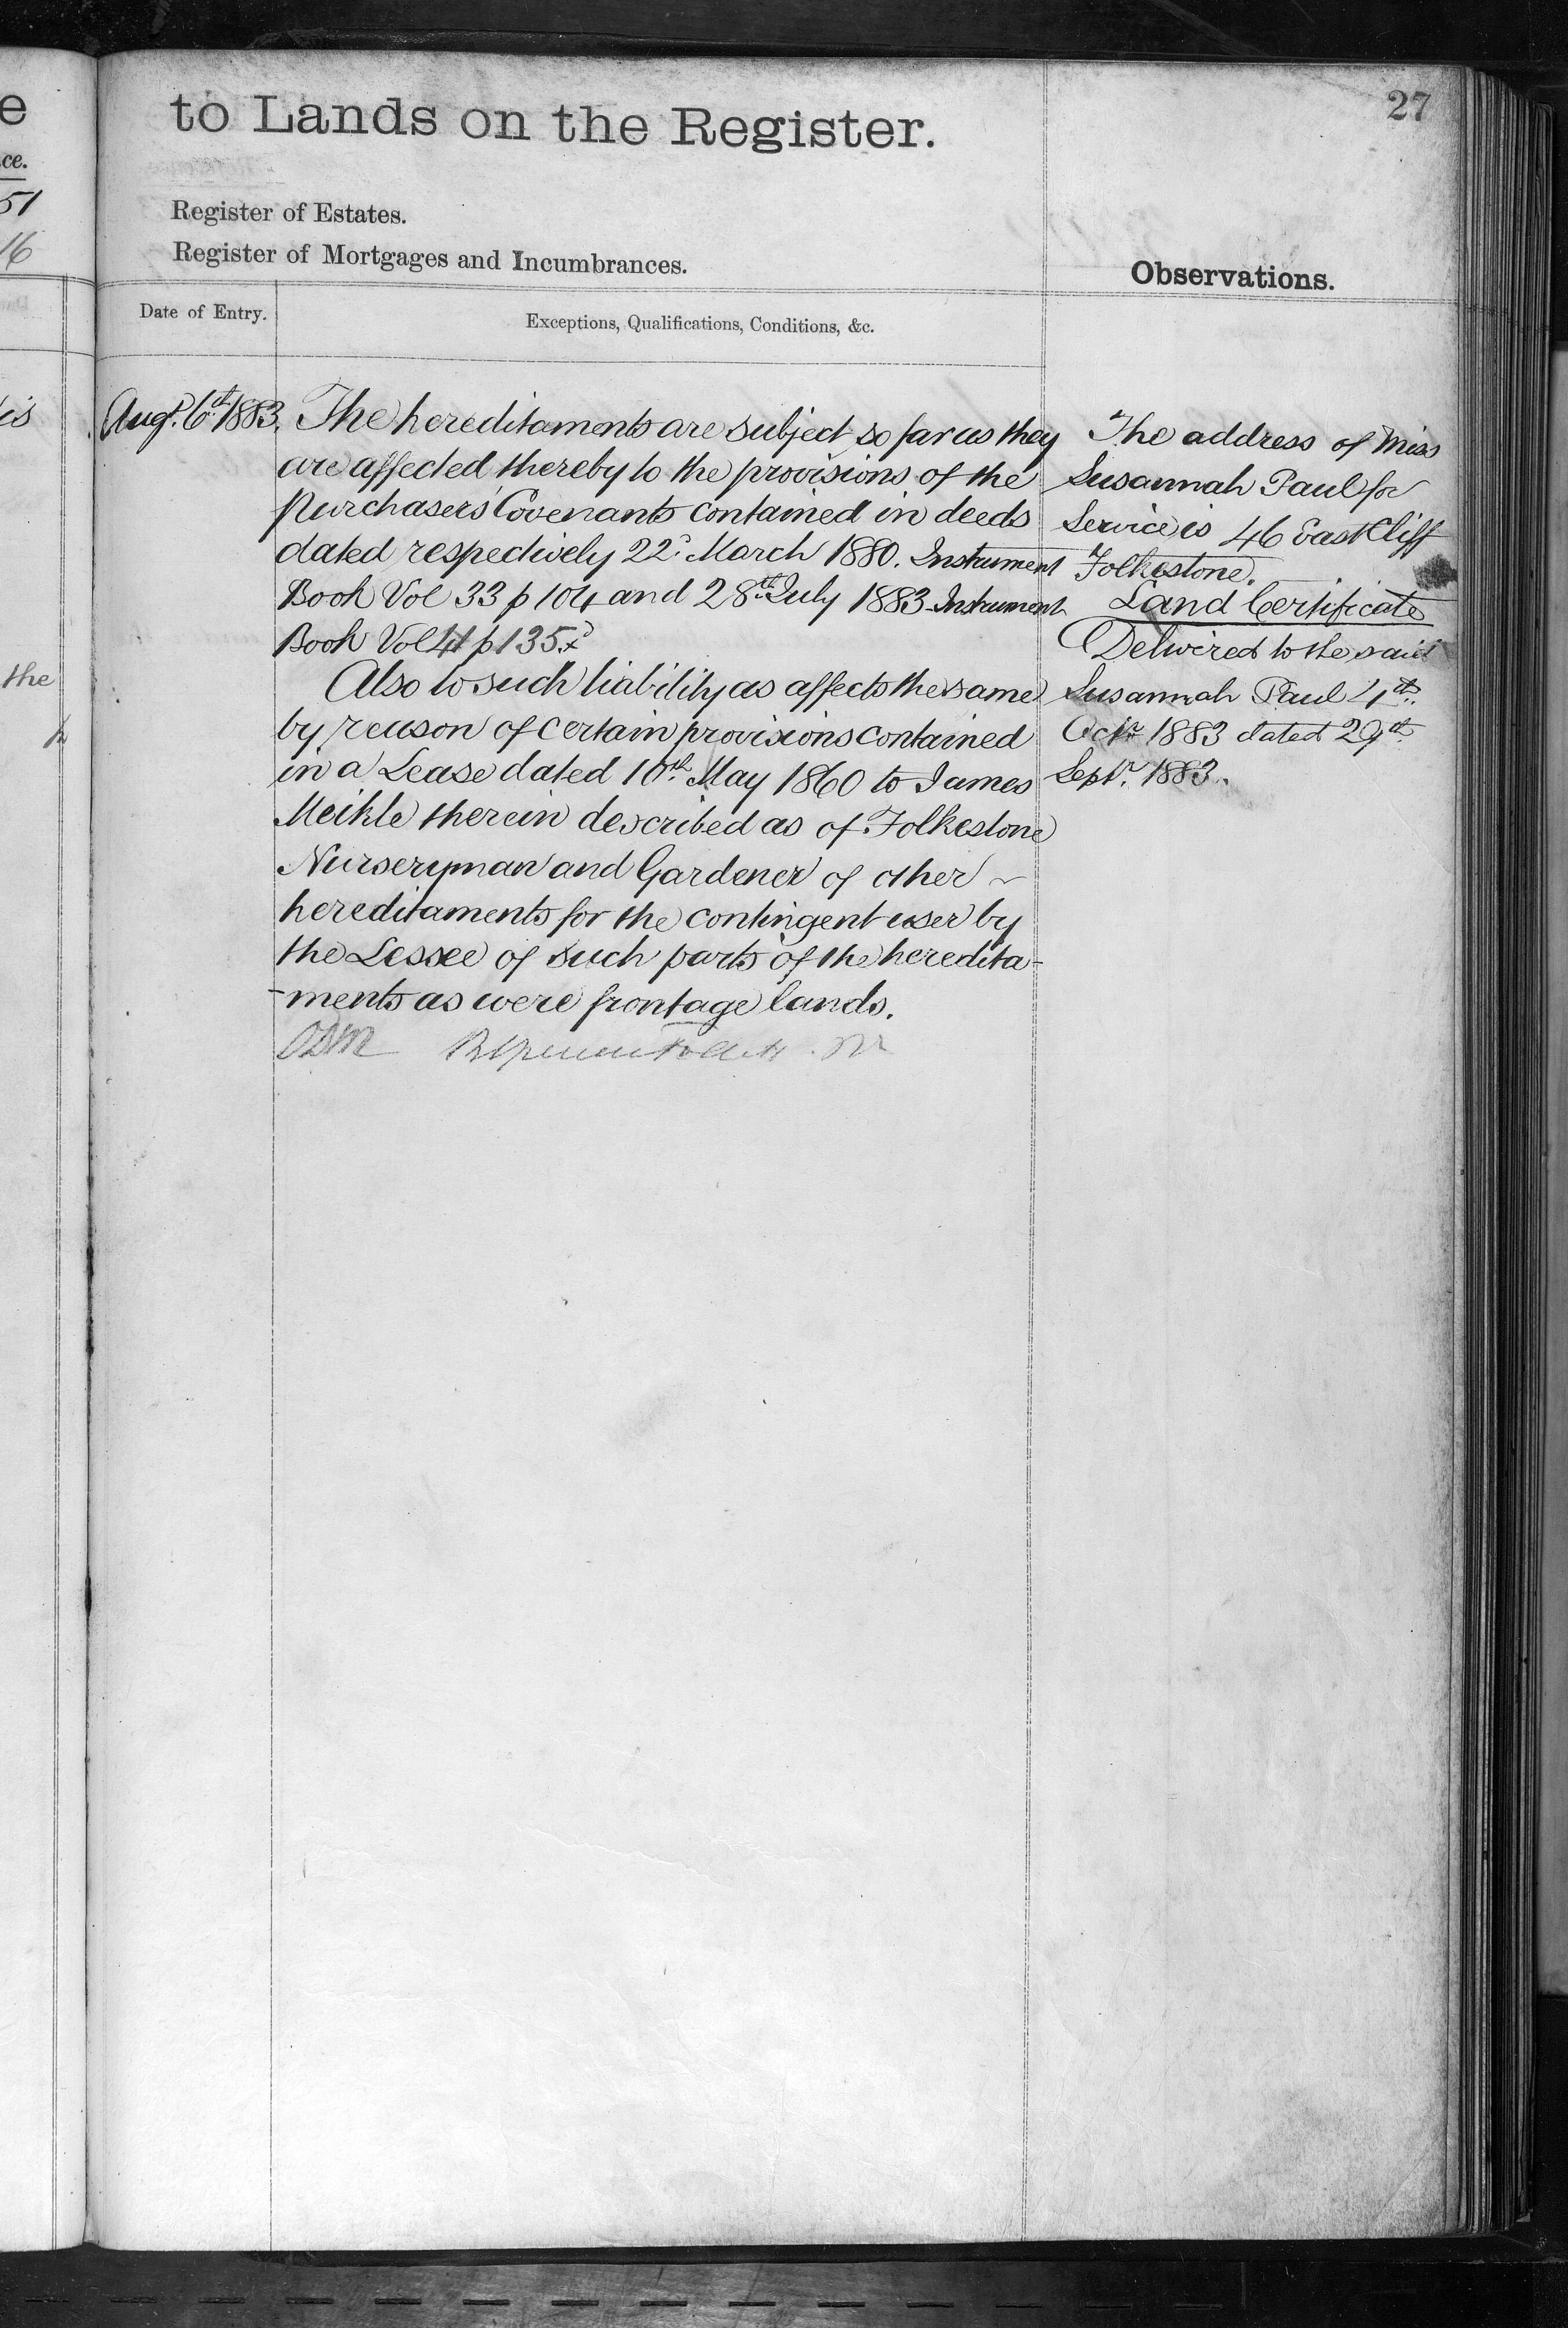 e
ce.
51
16
is
the
27
to Lands on the Register.
Register of Estates.
Register of Mortgages and Incumbrances.
Observations.
Date of Entry.
Exceptions, Qualifications, Conditions, &c.
Augt. 6th 1883.
The hereditaments are subject so far as they
are affected thereby to the provisions of the
Purchasers' Covenants contained in deeds
dated respectively 22d March 1880. Instrument
Book Vol 33 p 104 and 28th July 1883 Instrument
Book Vol 41 p 135.
Also to such liability as affects the same
by reason of certain provisions contained
in a Lease dated 10th May 1860 to James
Meikle therein described as of Folkestone
Nurseryman and Gardener of other
hereditaments for the contingent user by
the Lessee of such parts of the heredita-
-ments as were frontage lands.
The address of Miss
Susannah Paul for
Service is 46 East Cliff
Folkestone.
Land Certificate
Delivered to the said
Susannah Paul 4th
Octr 1883 dated 29th
Septr. 1883.